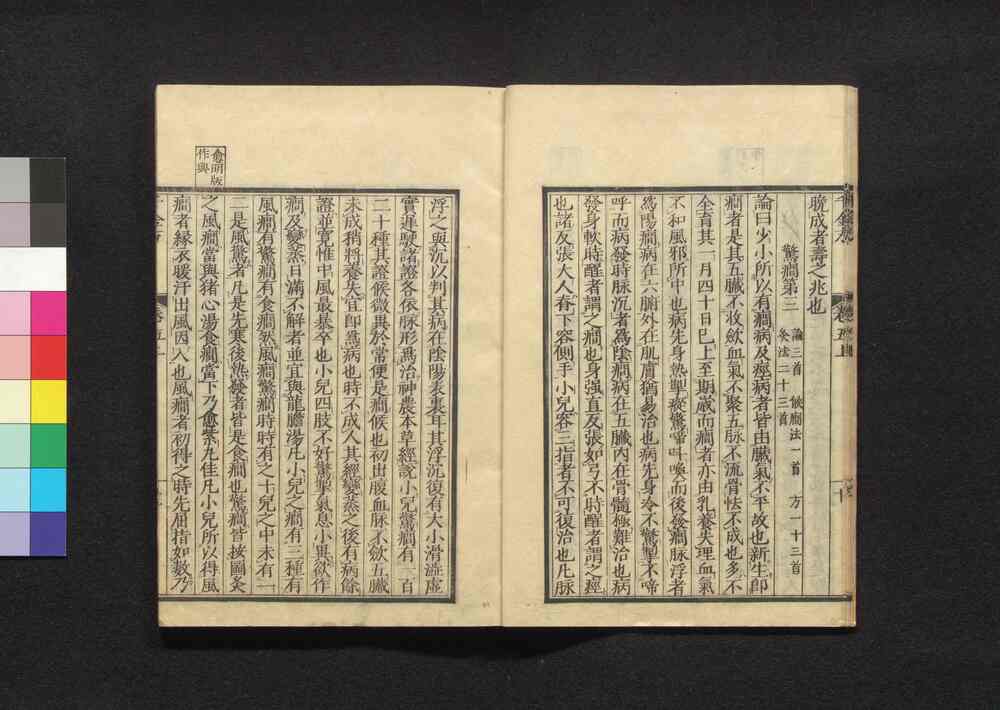 聰成者壽之兆也
驚癇第三 論三首 候癇法一首 方一十三首
灸法二十三首
論曰少小所以有癇病及痙病者皆由臟氣不平故也新生即
癇者是其五臟不收歛血氣不聚五脉不流骨怯不成也多不
全育其一月四十日已上至期歲而癇者亦由乳養失理血氣
不和風邪所中也病先身熱掣瘲驚啼叫喚而後發癇脉浮者
爲陽癇病在六腑外在肌膚猶易治也病先身冷不驚掣不啼
呼而病發時脉沉者爲陰癇病在五臟内在骨髓極難治也病
發身軟時醒者謂之癇也身强直反張如弓不時醒者謂之痙
也諸反張大人脊下容側手小兒容三指者不可復治也凡脉
浮之與沉以判其病在陰陽表裏耳其浮沉復有大小滑澁虛
實遲駛諸證各依脉形爲治神農本草經說小兒驚癇有一百
二十種其證候微異於常便是癇候也初出腹血脉不歛五臟
未成稍將養失宜即爲病也時不成人其經變蒸之後有病餘
證並寛惟中風最暴卒也小兒四肢不好驚掣氣息小異欲作
癇及變蒸日滿不解者並宜與龍膽湯凡小兒之癇有三種有
風癇有驚癇有食癇然風癇驚癇時時有之十兒之中未有一
二是風驚者凡是先寒後熱發者皆是食癇也驚癇皆按圖灸
之風癇當與猪心湯食癇當下乃愈紫丸佳凡小兒所以得風
癇者緣衣暖汗出風因入也風癇者初得之時先屈指如數乃
愈明版
作與